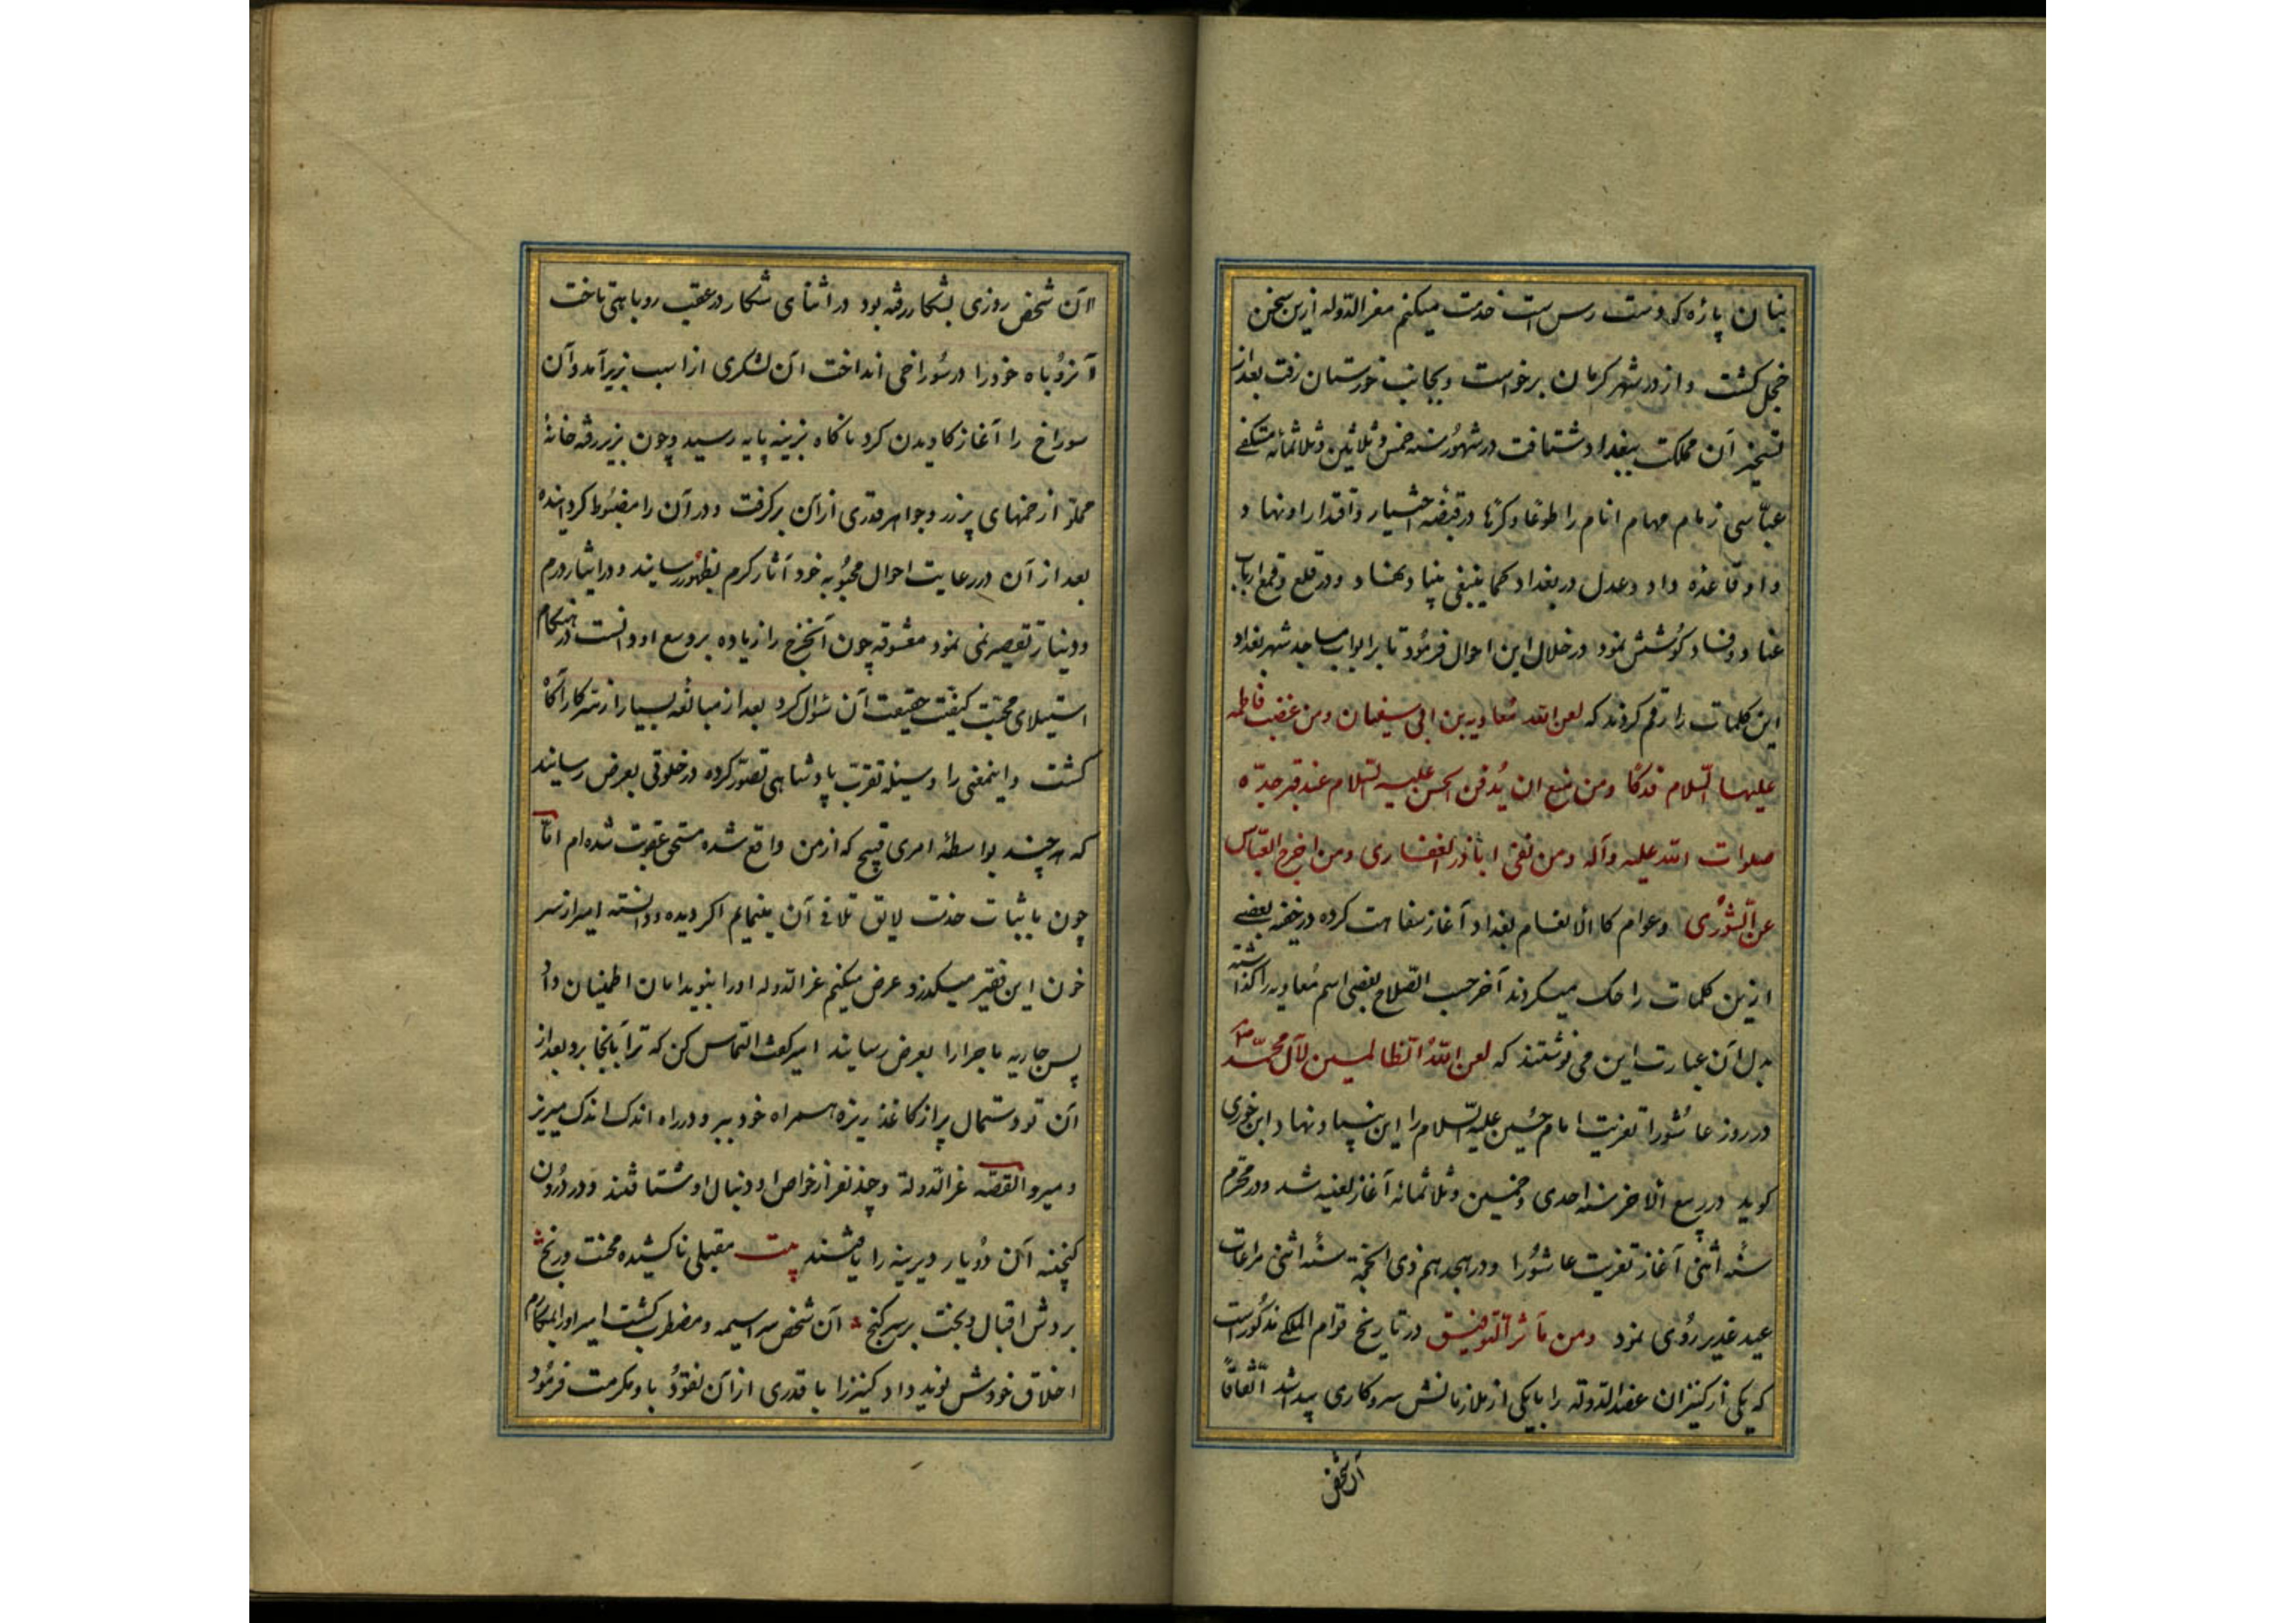 بنان پاره که دست رس است خدمت میکنم معزالدوله ازین سخن
خجل گشت و از در شهر کرمان برخواست و بجانب خوزستان رفت بعد از
تسخیر آن مملکت ببغداد شتافت در شهور سنه خمس و ثلاثین و ثلاثمائه مستکفی
عباسی زمام مهام انام را طوعا و کرها در قبضه اختیار و اقتدار او نهاد و
داو قاعده داد و عدل در بغداد کما ینبغی بنیاد نهاد و در قلع و قمع ارباب
عناد و فساد کوشش نمود در خلال این احوال فرمود تا بر ابواب مساجد شهر بغداد
این کلمات را رقم کردند که لعن الله معاویه بن ابی سفیان و من غضب فاطمه
علیها السلام فدکا و من منع ان یدفن الحسن علیه السلام عند قبر جده
صلوات الله علیه و آله و من نفی اباذر الغفاری و من اخرج العباس
عن الشوری و عوام کالانعام بغداد آغاز سفاهت کرده در خفیه بعضی
ازین کلمات را حک میکردند آخر حسب الصلاح بعضی اسم معاویه را گذاشته
بدل آن عبارت این می نوشتند که لعن الله الظالمین لآل محمد
در روز عاشورا تعزیت امام حسین علیه السلام را این بنیاد نهاد ابن خوزی
گوید در ربیع الاخر سنه احدی و خمسین و ثلاثمائه آغاز لعنیه شد و در محرم
سنه اثنی آغاز تعزیت عاشورا و در هجدهم ذی الحجه سنه اثنی مراعات
عید غدیر روی نمود و من مآثر التوفیق در تاریخ قوام الملکی مذکور است
که یکی از کنیزان عضدالدوله را با یکی از ملازمانش سروکاری پیدا شد اتفاقا
آن شخص
آن شخص روزی بشکار رفته بود در اثنای شکار در عقب روباهی تاخت
آنروباه خود را در سوراخی انداخت آن لشکری از اسب بزیر آمد و آن
سوراخ را آغاز کاویدن کرد ناگاه بزینه پایه رسید و چون بزیر رفت خانۀ
مملو از خمهای پر زر و جواهر قدری از آن برگرفت و در آن را مضبوط گردانیده
بعد از آن در رعایت احوال محبوبه خود آثار کرم بظهور رسانید و در ایثار درم
و دینار تقصیر نمی نمود معشوقه چون آنخرج را زیاده بر وسع او دانست در هنگام
استیلای محبت کیفیت حقیقت آن سوال کرد بعد از مبالغه بسیار از سر کار آگاه
گشت و اینمعنی را وسیله تقرب پادشاهی تصور کرده در خلوتی بعرض رسانید
که هر چند بواسطه امری قبیح که از من واقع شده مستحق عقوبت شده ام اما
چون باثبات خدمت لایق تلافی آن مینمایم اگر دیده و دانسته امیر از سر
خون این فقیر میگذرد عرض میکنم عزالدوله او را بنوید امان اطمینان داد
پس جاریه ماجرا را بعرض رسانید امیر گفت التماس کن که ترا بآنجا برد بعد از
آن تو دستمال پر از کاغذ ریزه همراه خود ببر و در راه اندک اندک میریز
و میرو القصه عزالدوله و چند نفر از خواص او دنبال او شتافتند و در درون
گنجینه آن دو یار دیرینه را یافتند بیت مقبلی ناکشیده محنت و رنج
بردش اقبال و بخت بر سر گنج آن شخص سراسیمه و مضطرب گشت امیر او را بمکارم
اخلاق خودش نوید داد کنیز را با قدری از آن نقود باو مکرمت فرمود